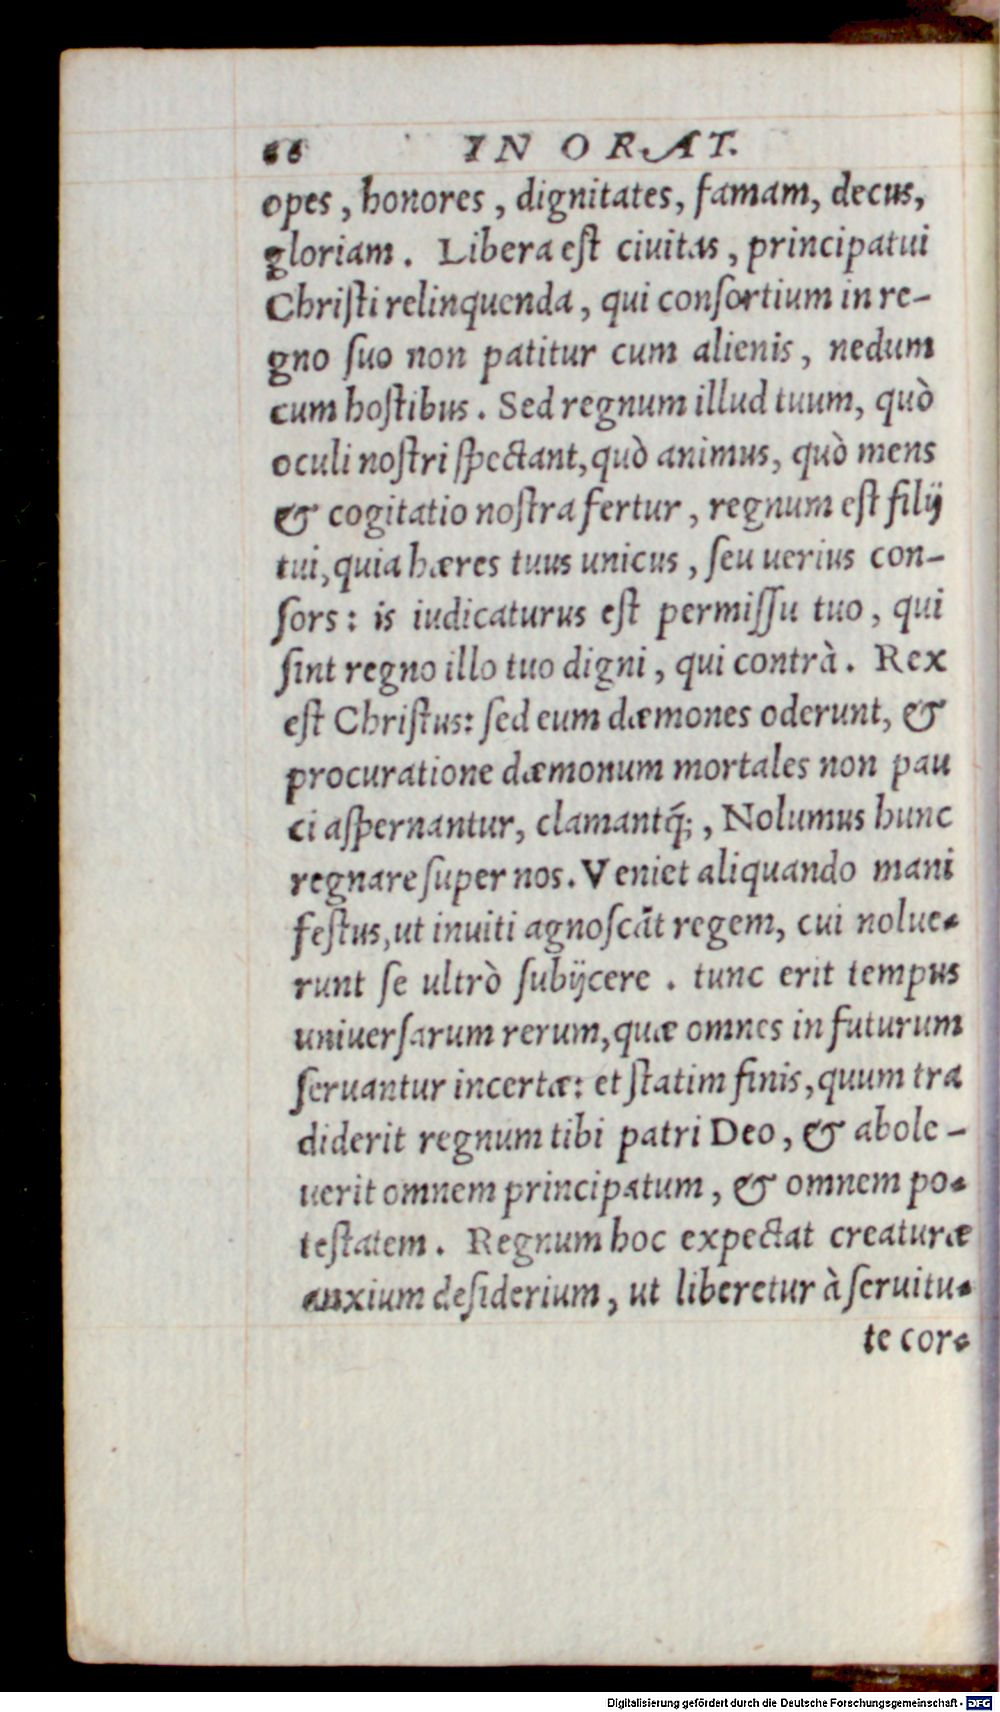 66 IN ORAT.
opes, honores, dignitates, famam, decus,
gloriam. Libera eſt ciuitas, principatui
Chriſti relinquenda, qui conſortium in re-
gno ſuo non patitur cum alienis, nedum
cum hoſtibus. Sed regnum illud tuum, quò
oculi noſtri ſpectant, quò animus, quò mens
& cogitatio noſtra fertur, regnum eſt filij
tui, quia hæres tuus unicus, ſeu uerius con-
ſors: is iudicaturus eſt permiſſu tuo, qui
ſint regno illo tuo digni, qui contrà. Rex
eſt Chriſtus: ſed eum dæmones oderunt, &
procuratione dæmonum mortales non pau
ci aſpernantur, clamantq́;, Nolumus hunc
regnare ſuper nos. Veniet aliquando mani
feſtus, ut inuiti agnoſcãt regem, cui nolue-
runt ſe ultrò ſubijcere. tunc erit tempus
uniuerſarum rerum, quæ omnes in futurum
ſeruantur incertæ: et ſtatim finis, quum tra
diderit regnum tibi patri Deo, & abole-
uerit omnem principatum, & omnem po-
teſtatem. Regnum hoc expectat creaturæ
anxium deſiderium, ut liberetur à ſeruitu-
te cor-
Digitalisierung gefördert durch die Deutsche Forschungsgemeinschaft - DFG